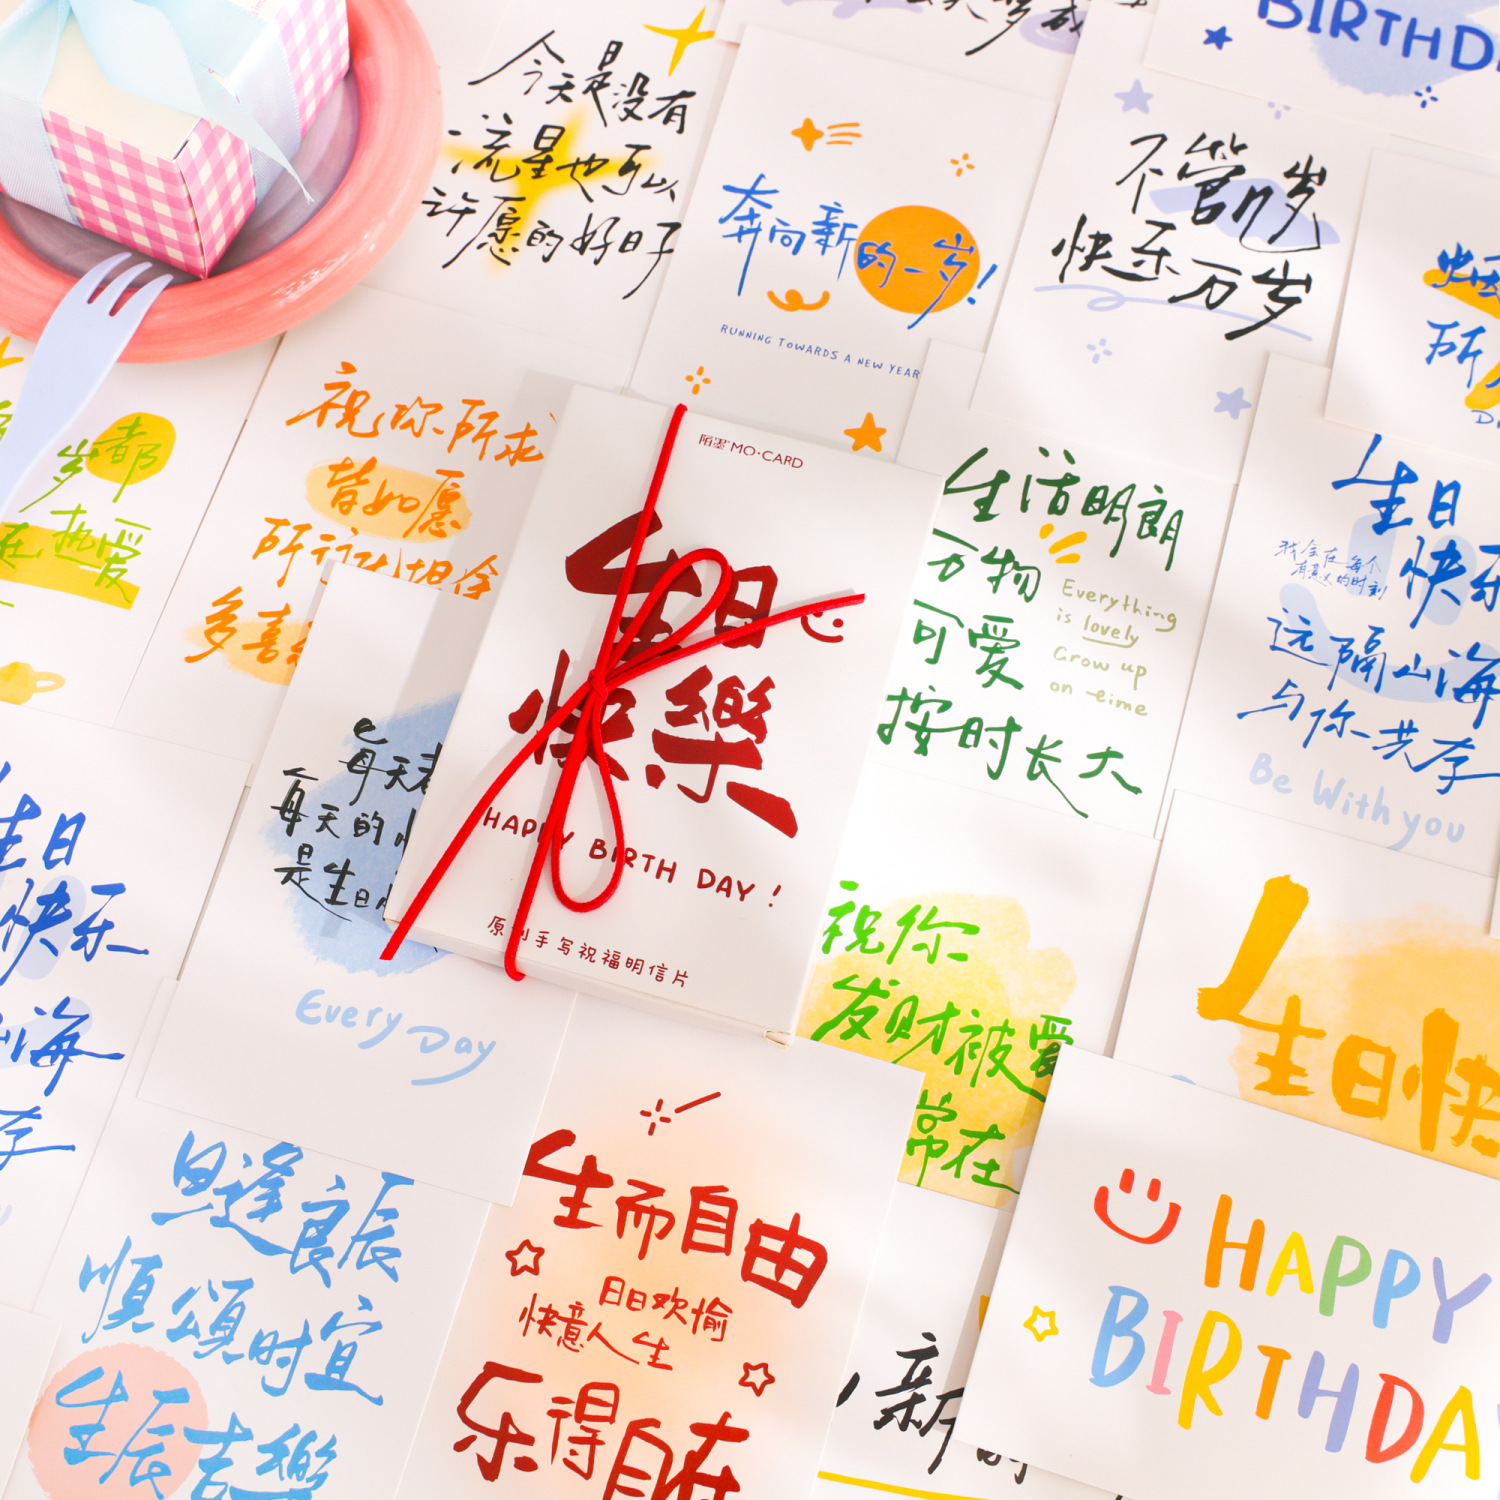 今天是没有
流星也可以
许愿的好日子
BIRTHD
奔向新的一岁!
RUNNING TOWARDS A NEW YEAR
不管几岁
快乐万岁
所
岁都
在热爱
祝你所求
皆如愿
所行化坦途
多喜
陌墨 MO·CARD
生日
快樂
HAPPY BIRTH DAY!
原创手写祝福明信片
生活明朗
万物
可爱
Everything
is lovely
Grow up
on time
按时长大
生日
快乐
我会在每个
有意义的时刻
远隔山海
与你共享
Be With you
生日
快乐
山海
享
每天都
每天的
是生日
Every Day
祝你
发财被爱
常在
生日快
旦逢良辰
順頌时宜
生辰吉樂
生而自由
日日欢愉
快意人生
乐得自在
新的
HAPPY
BIRTHDA